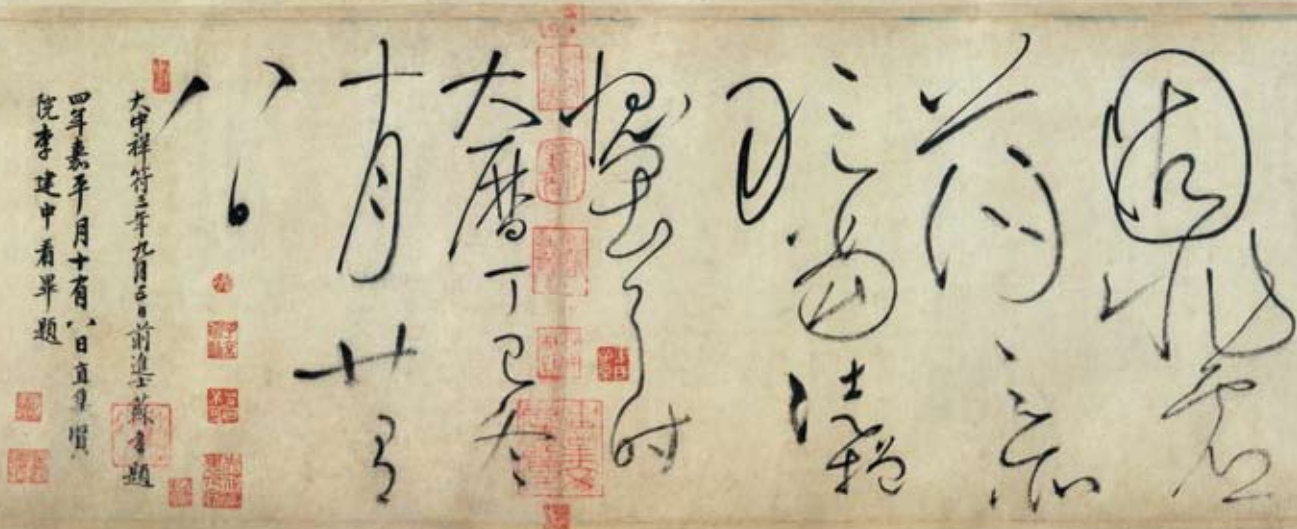 固非虛
薄之所
敢當徒增
愧畏耳時
大曆丁巳冬
十月廿有
八日
大中祥符三年九月五日前進士蘇耆題
四年嘉平月十有八日直集賢
院李建中看畢題